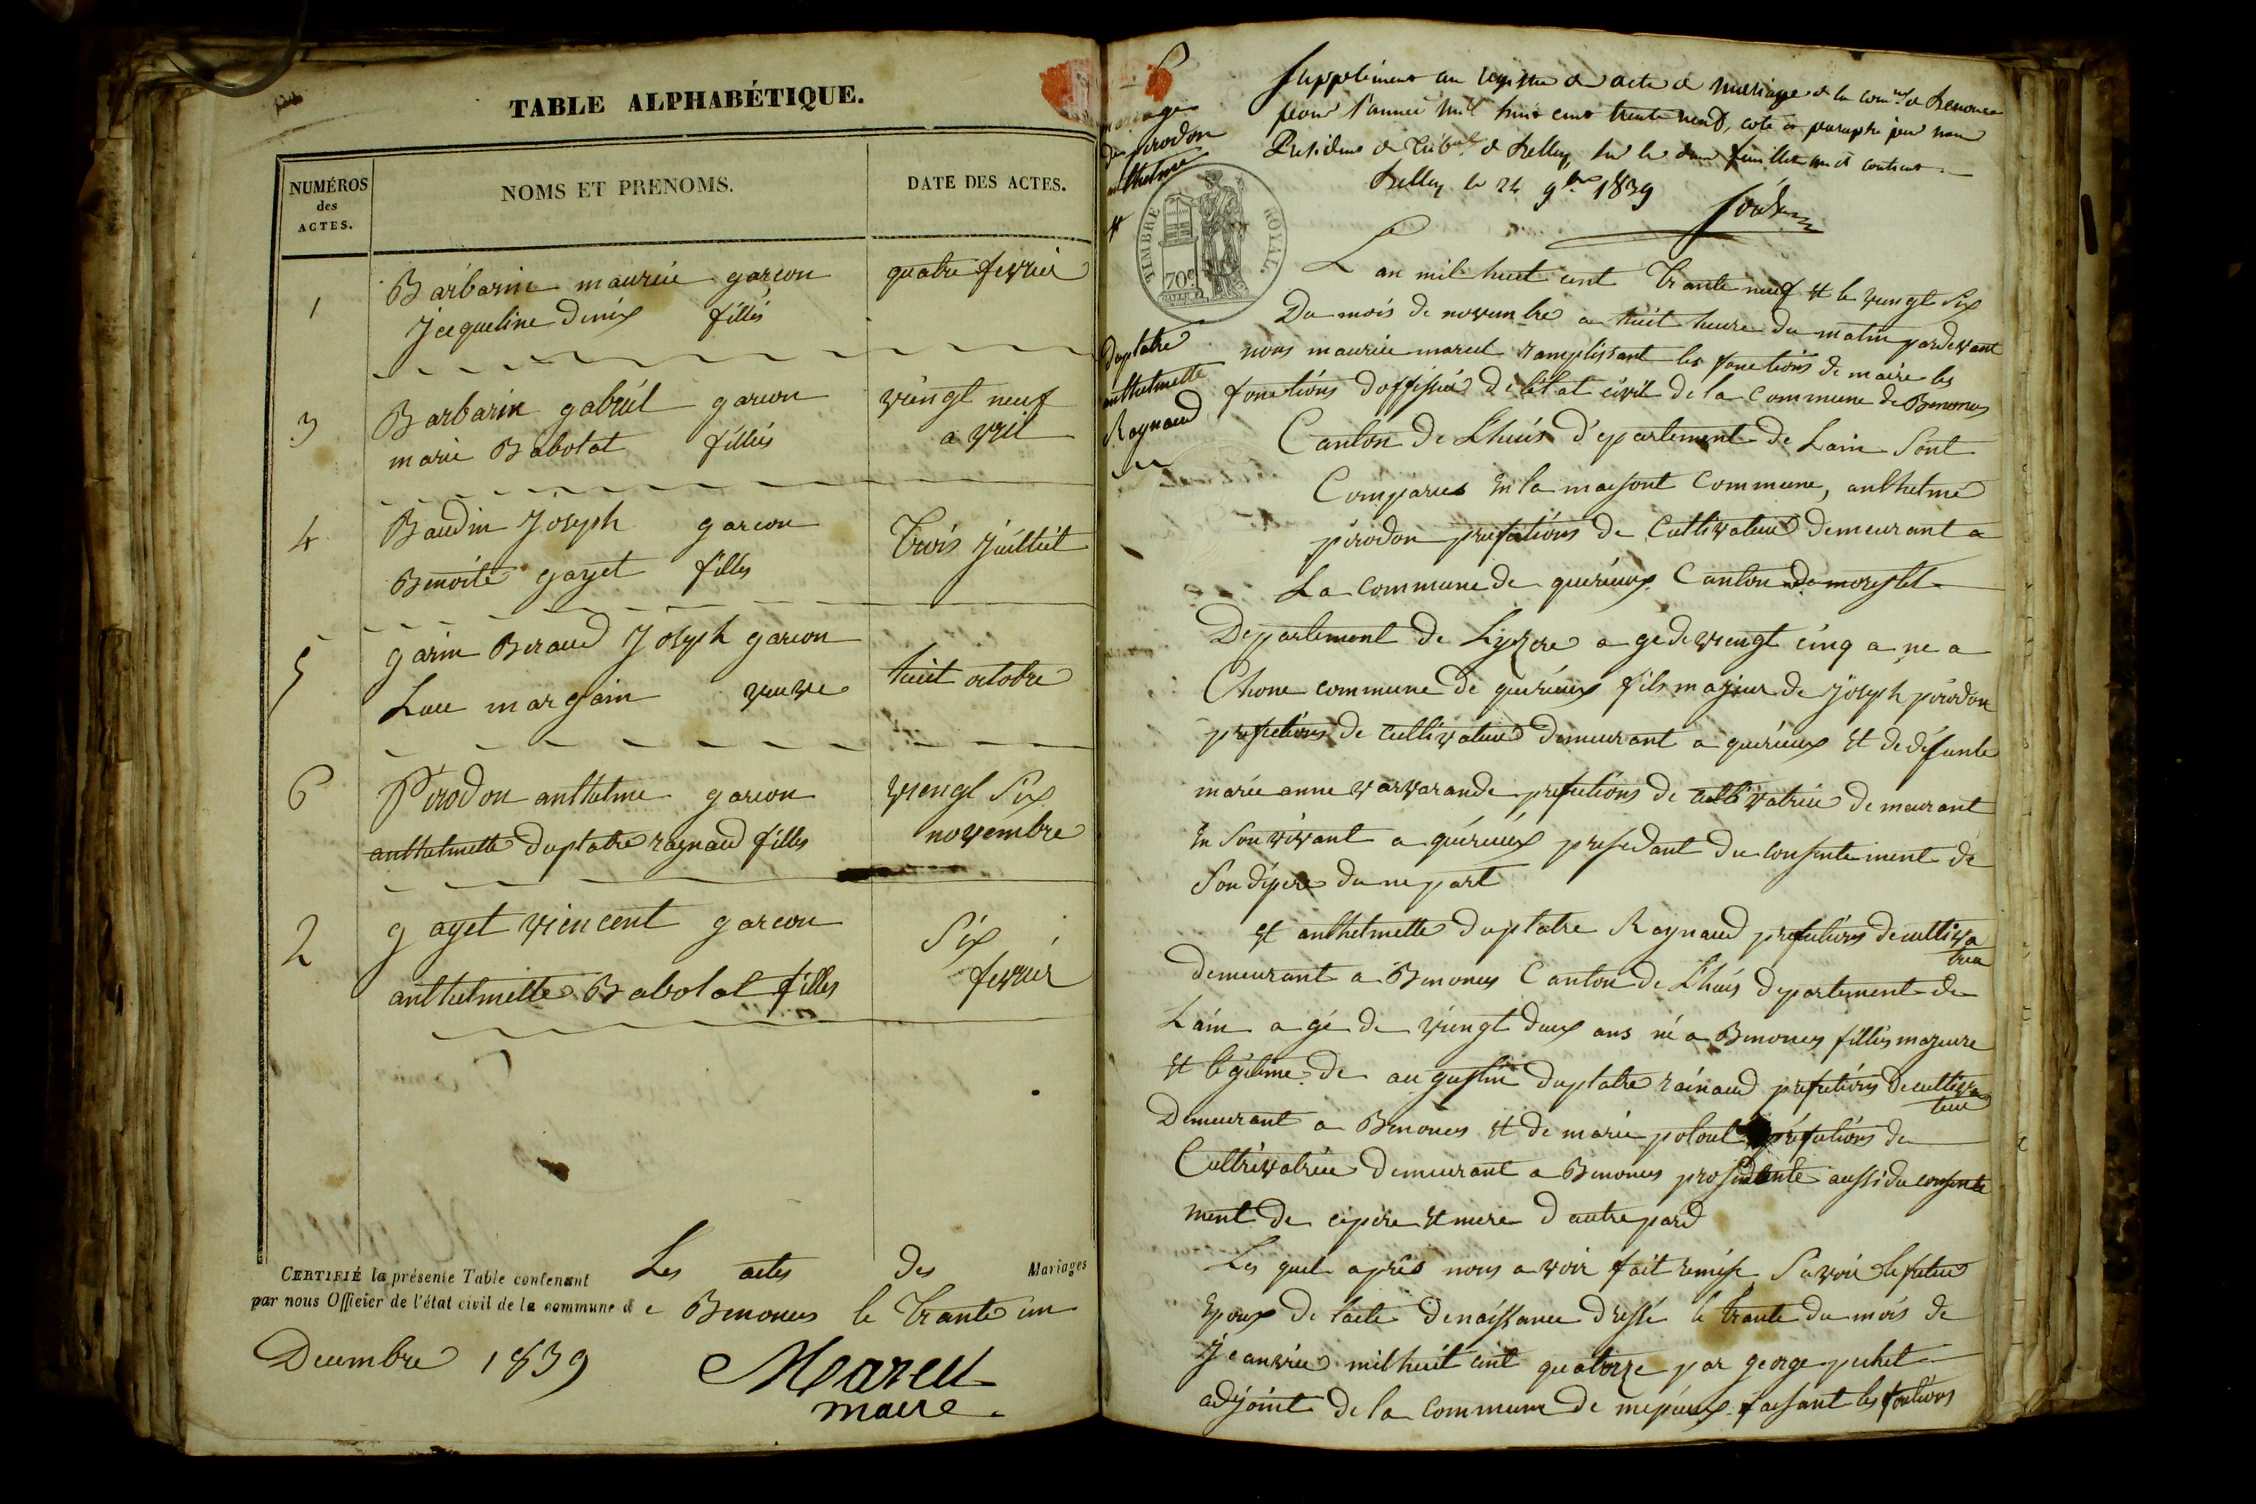 TABLE ALPHABÉTIQUE.
NUMÉROS des ACTES.
NOMS ET PRENOMS.
DATE DES ACTES.
1
Barbarin maurice garcon
quatre fevrier
Jacqueline deniz filles
3
Barbarin gabriel garcon
viengt neuf
marie Babolat filles
avril
4
Baudin Joseph garcon
trois Juilliet
Benoite gayet filles
5
garin Beraud Joseph garcon
huit octobre
Luce margain veuve
6
Pirodon anthelme garcon
viengt Six
anthelmette duplatre raynaud filles
novembre
2
gayet viencent garcon
Six
anthelmette Babolat filles
fevrier
CERTIFIÉ la présente Table contenant Les actes des Mariages
par nous Officier de l'état civil de la commune de Benonces le trante un
Decembre 1839
Marcel
maire.
mariage
de pirodon
anthelme
et
duplatre
anthelmette
Raynaud
Supplément au registre de acte de mariage de la comne de Benonce
pour l'année mil huit cent trente neuf, coté et paraphé par nous
Président du Tribal de Belley, sur le feuillet
Belley le 24 9bre 1839
TIMBRE ROYAL.
70c
L an mil huit cent trante neuf et le viengt Six
Du mois de novembre a huit heure du matin pardevant
nous maurice marcel ramplissant les fonctions de maire les
fonctions doffissier de létat civil de la Commune de Benonces
Canton de Lhuis département de Lain Sont
Comparus en la maisont Commune, anthelme
pirodon profetions de Cultivateur demeurant a
La commune de quirieux Canton de morestel
Departement de Lyzere a gé de viengt cinq a né a
Chone commune de quirieux fils majeur de Joseph pirodon
profetions de cultivateur demeurant a quirieux et de défunte
marie anne varvarande profetions de cultivatrice demeurant
en Son vivant a quirieux prosedant du consentement de
Son dépere dune part
et anthelmette duplatre Raynaud profetions de cultiva
trice
demeurant a Benonces Canton de Lhuis departement de
Lain a gé de viengt deux ans né a Benonces filles majeure
et légitime de augustin duplatre rainaud profetions de cultiva
teur
Demeurant a Benonces et de marie polout profetions de
Cultrivatrice demeurant a Benonces prosedante aussi du consente
ment de cepere et mere d autre pard
Les quel après nous avoir fait remise Savoir le futur
Epoux de lacte denaissance dressé le trante du mois de
Jeanvier mil huit cent quatorze par george pichet
adjoint de la commune de mepieux faisant les fontions